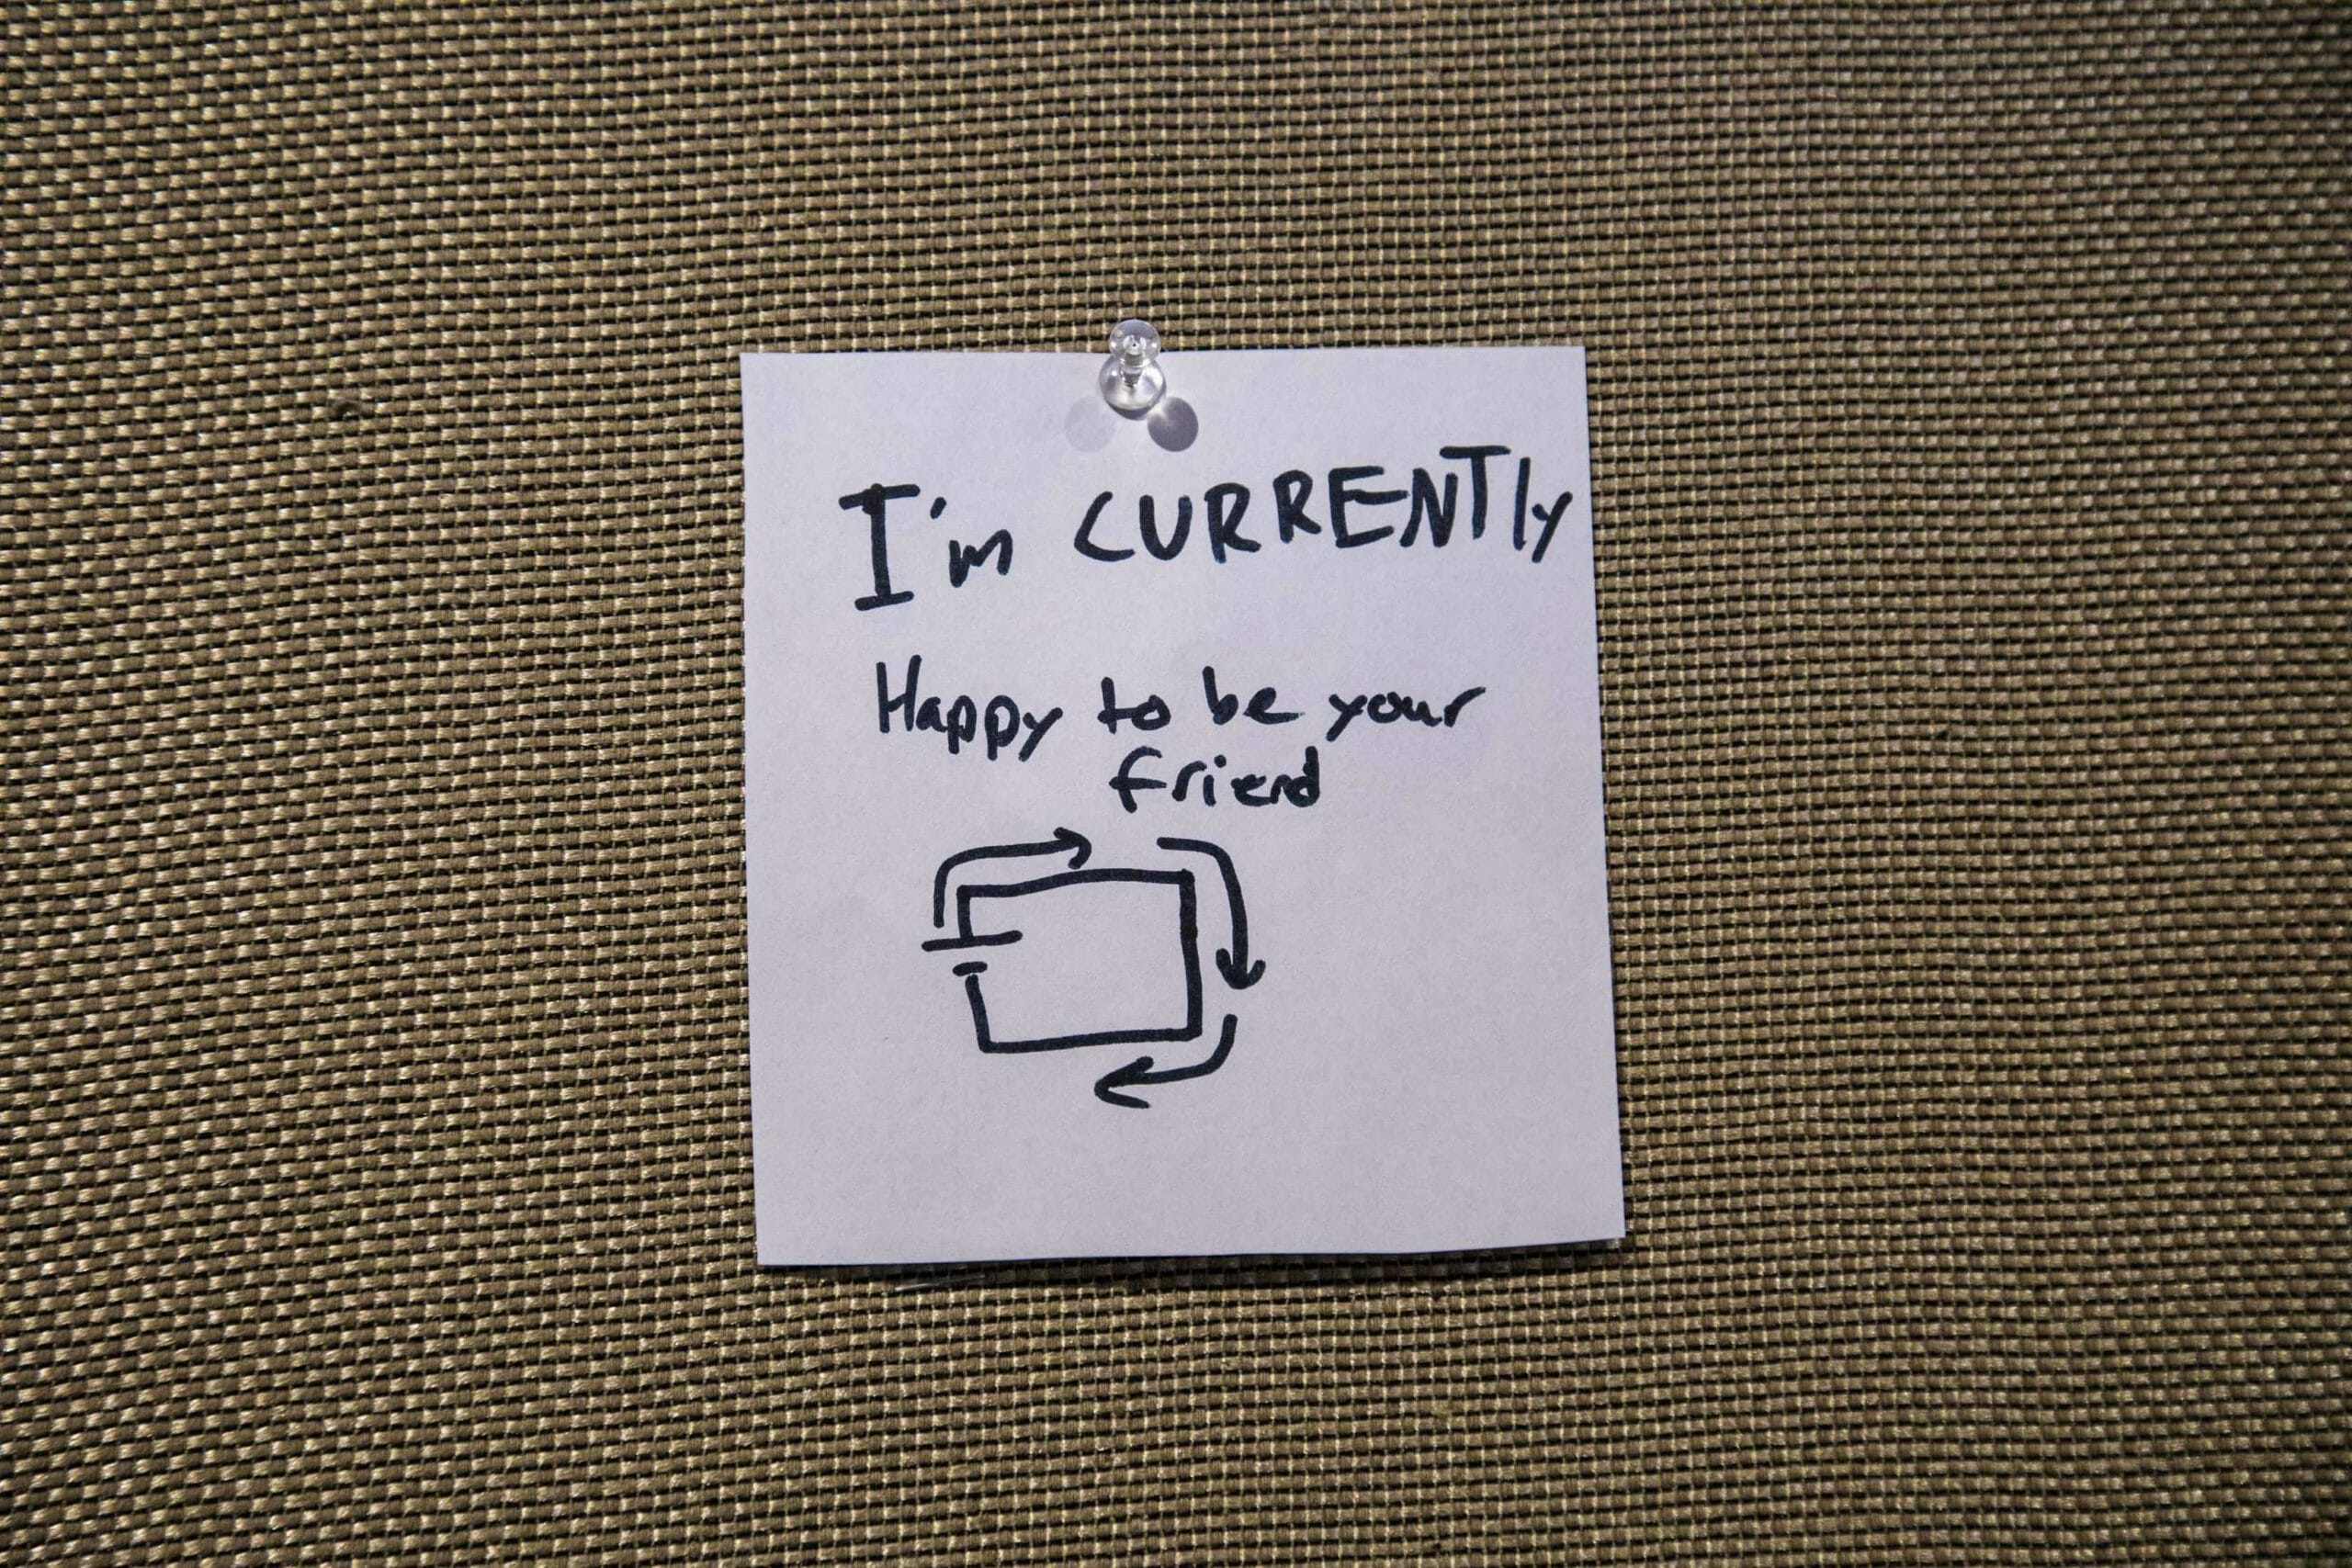 I'm CURRENTly
Happy to be your
friend